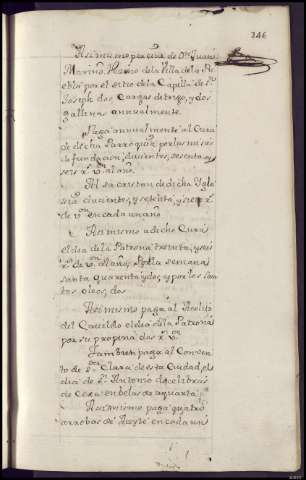 246
Asimismo por una de Dn. Juan
Mariño, Vezino de la Villa de la
por el sitio de la Capilla de Sn.
Joseph dos Cargas de trigo, y dos
gallinas annualmente.
Paga annualmente al Cura
de dicha Parroquia por las misas
de fundacion, ducientos, sesenta, y
seis rs. vn. al año.
Al sacristan de dicha Igle
sia ducientos, y setenta, y siete rs.
de vn. en cada un año
Asimismo a dicho Cura
el dia de la Patrona treinta, y seis
rs. de vn. al año, y por la semana
santa quarenta, y dos, y por los san
tos oleos, dos
Asimismo paga al
del el dia de la Patrona
por su propina dos rs. vn.
Tambien paga al Conven
to de Sta. Clara de esta Ciudad, el
dia de Sn. Antonio doce libras
de Cera en belas de aquarta
Asimismo paga quatro
arrobas de Aceyte en cada un